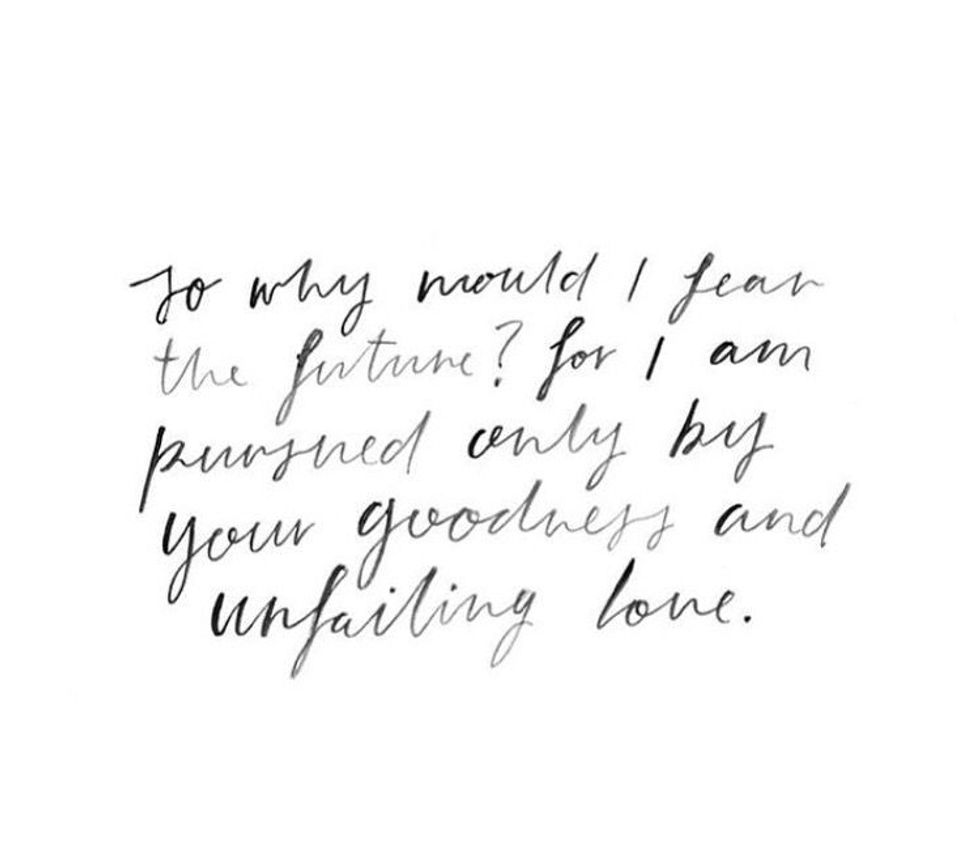 So why would I fear
the future? for I am
pursued only by
your goodness and
unfailing love.